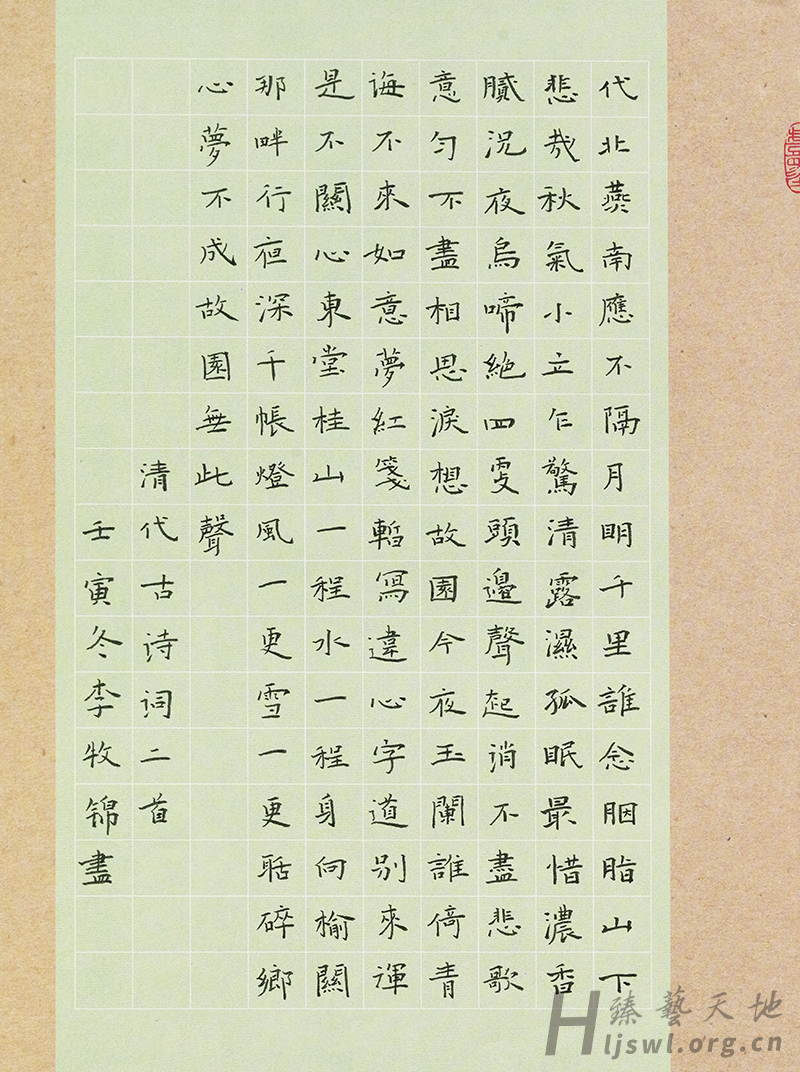 代北燕南應不隔月明千里誰念胭脂山下
悲哉秋氣小立乍驚清露濕孤眠最惜濃香
膩況夜烏啼絕四更頭邊聲起消不盡悲歌
意匀不盡相思淚想故園今夜玉闌誰倚青
誨不來如意夢紅箋暫寫違心字道别來渾
是不關心東堂桂山一程水一程身向榆關
那畔行夜深千帳燈風一更雪一更聒碎鄉
心夢不成故園無此聲
清代古诗词二首
壬寅冬李牧锦盡
臻藝天地
Hljswl.org.cn